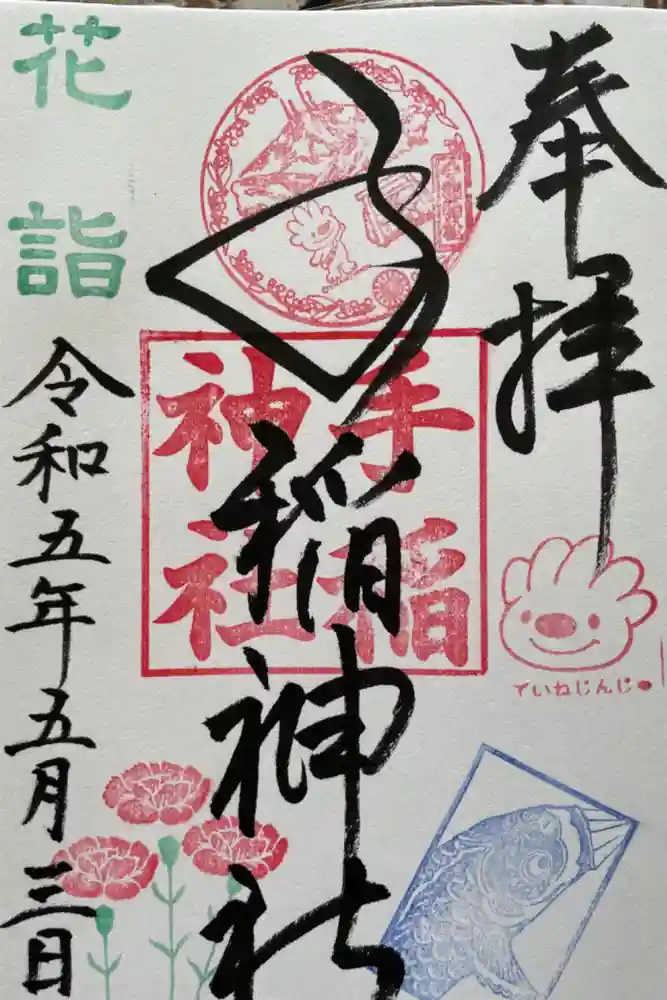 奉拝
手稲神社
手稲
神社
ていねじんじゃ
花詣
令和五年五月三日